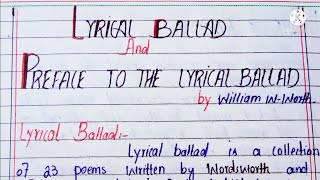 LYRICAL BALLAD
And
PREFACE TO THE LYRICAL BALLAD
by William W-Worth.
Lyrical Ballad:-
Lyrical ballad is a collection
of 23 poems written by Wordsworth and